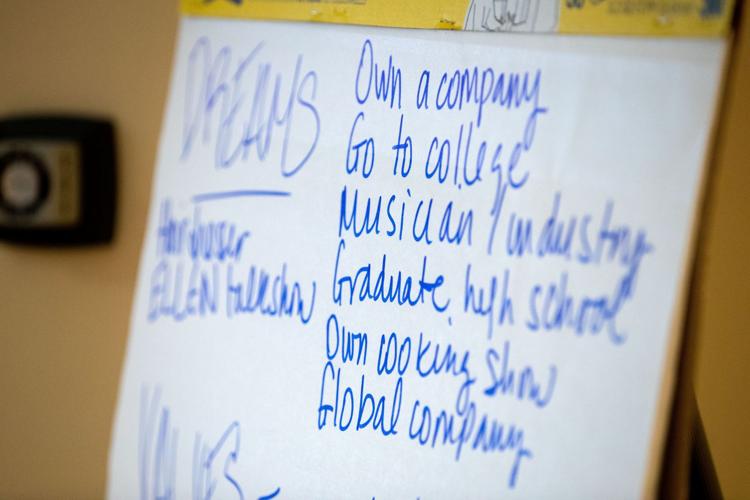 DREAMS
ELLEN talkshow
Own a company
Go to college
Musician / industry
Graduate high school
Own cooking show
Global company
VALUES